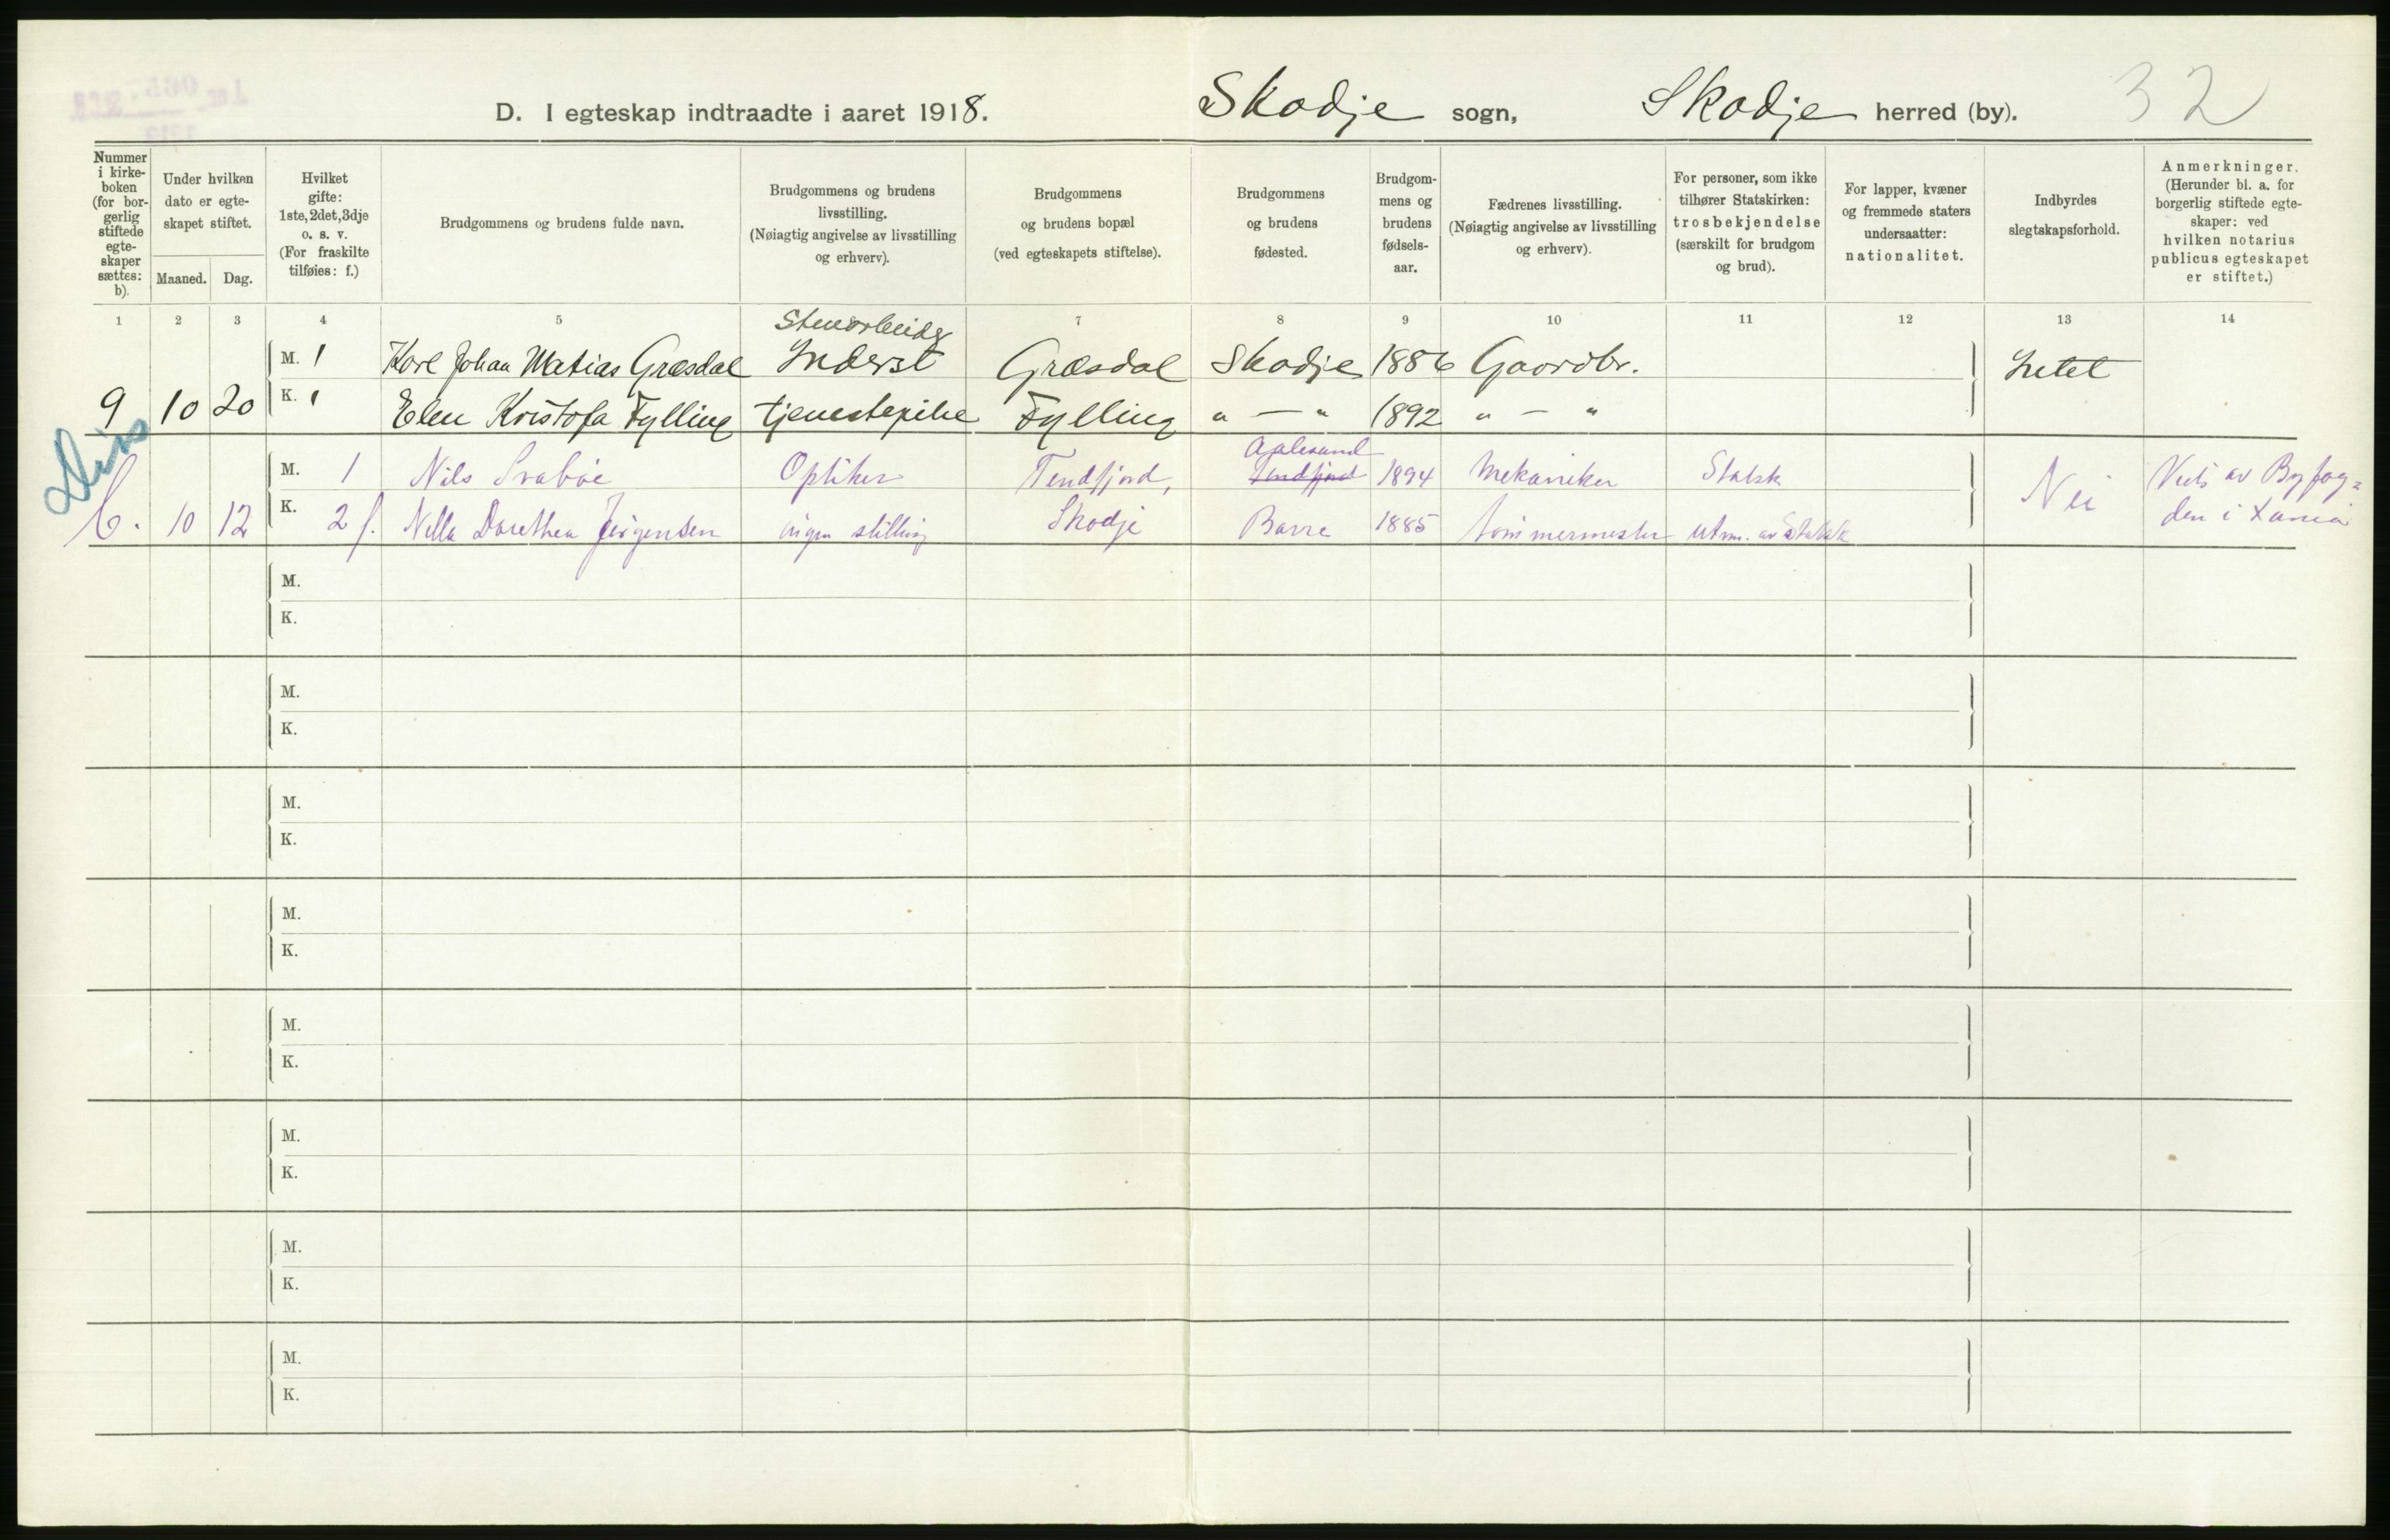 D. I egteskap indtraadte i aaret 1918. Skodje sogn, Skodje herred (by). 32
Nummer i kirke-boken (for bor-gerlig stiftede egte-skaper sættes: b).
Under hvilken dato er egte-skapet stiftet.
Maaned. Dag.
Hvilket gifte: 1ste, 2det, 3dje o. s. v. (For fraskilte tilføies: f.)
Brudgommens og brudens fulde navn.
Brudgommens og brudens livsstilling. (Nøiagtig angivelse av livsstilling og erhverv).
Brudgommens og brudens bopæl (ved egteskapets stiftelse).
Brudgommens og brudens fødested.
Brudgom-mens og brudens fødsels-aar.
Fædrenes livsstilling. (Nøiagtig angivelse av livsstilling og erhverv).
For personer, som ikke tilhører Statskirken: trosbekjendelse (særskilt for brudgom og brud).
For lapper, kvæner og fremmede staters undersaatter: nationalitet.
Indbyrdes slegtskapsforhold.
Anmerkninger. (Herunder bl. a. for borgerlig stiftede egte-skaper: ved hvilken notarius publicus egteskapet er stiftet.)
1 2 3 4 5 6 7 8 9 10 11 12 13 14
Stenarbeider
M. 1 Karl Johan Matias Græsdal Inderst Græsdal Skodje 1886 Gaardbr. Intet
9 10 20 K. 1 Elen Kristofa Fylling tjenestepike Fylling " — " 1892 " — "
Aalesund
M. 1 Nils Svabøe Optiker Tendfjord, Tendfjord 1894 Mekaniker Statsk Nei Viet av Byfog-
b. 10 12 K. 2 f. Nilla Dorethea Jørgensen ingen stilling Skodje Borre 1885 tømmermester utm. av Statsk den i
M.
K.
M.
K.
M.
K.
M.
K.
M.
K.
M.
K.
M.
K.
M.
K.